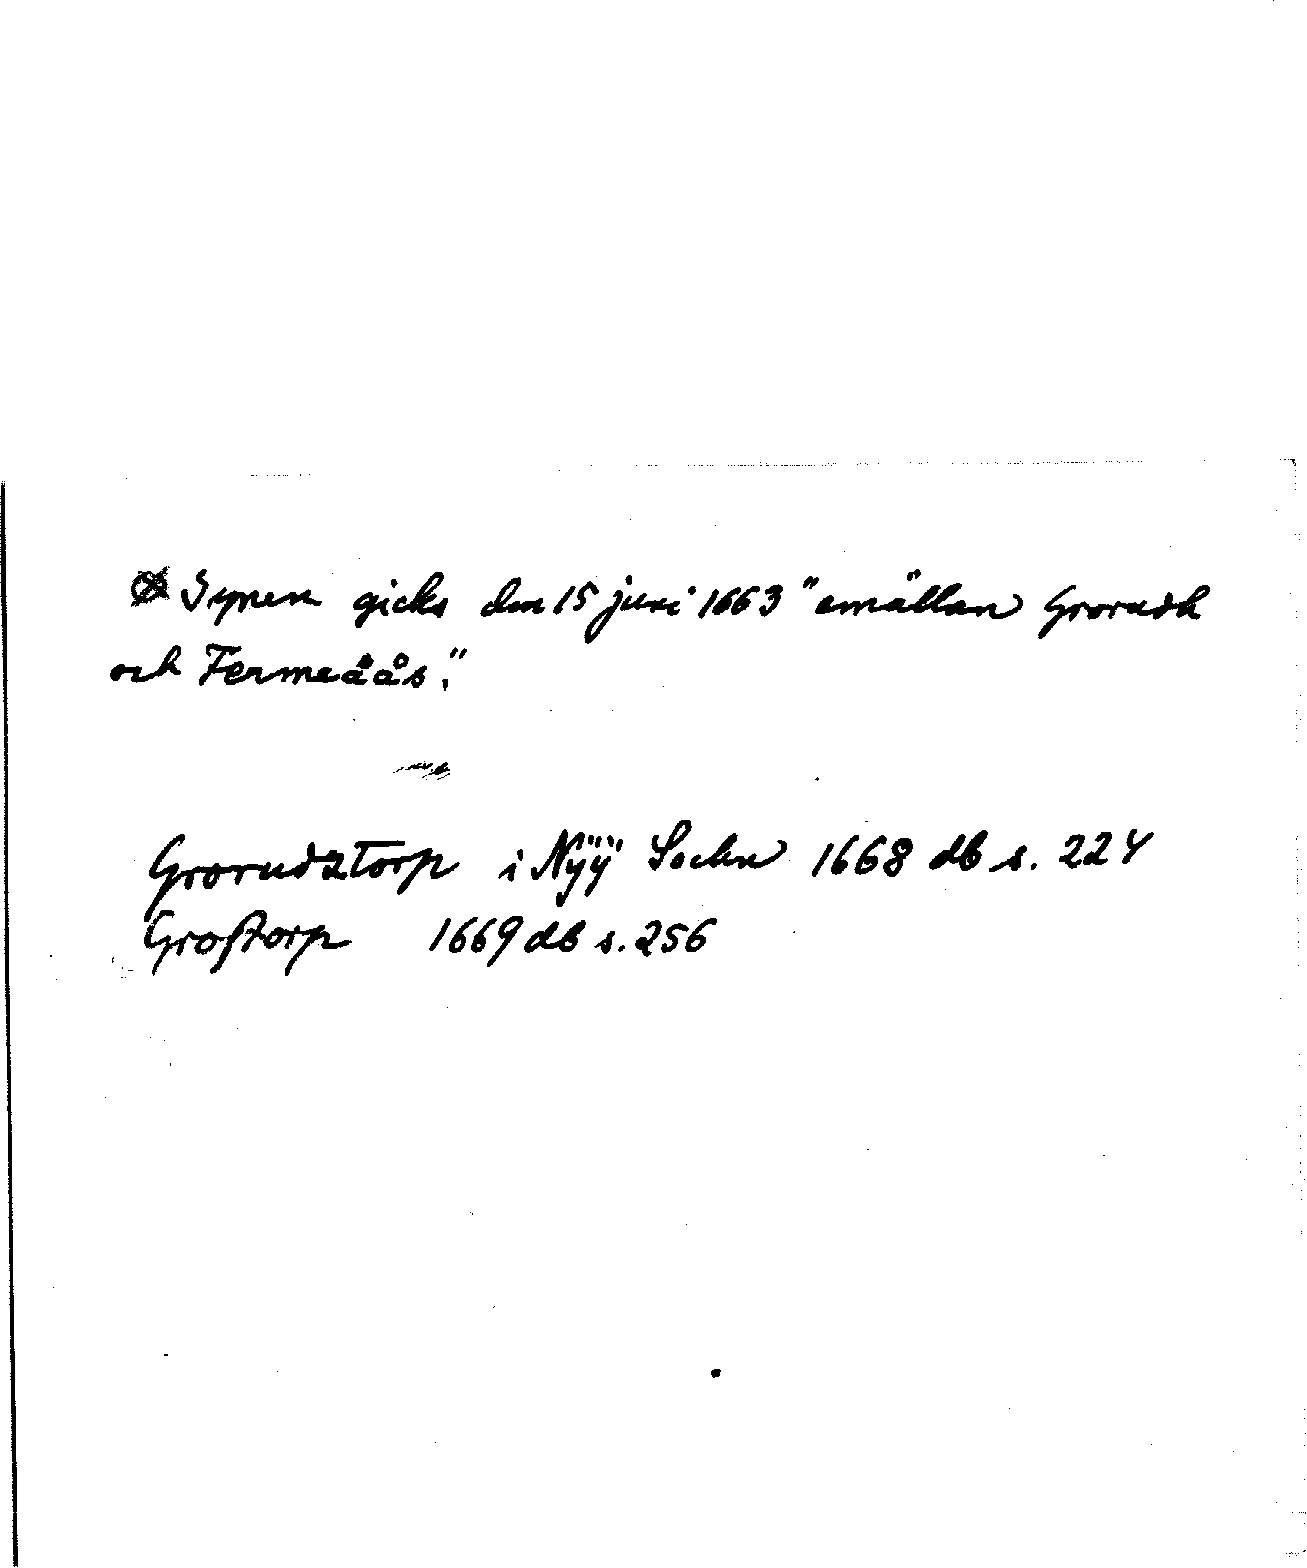 Synen gicks den 15 juni 1663 "emällan Grorudh
och Fermedåås."
Grorudztorp i Nÿÿ Sochn 1668 db s. 224
Groſtorp 1669 db s. 256